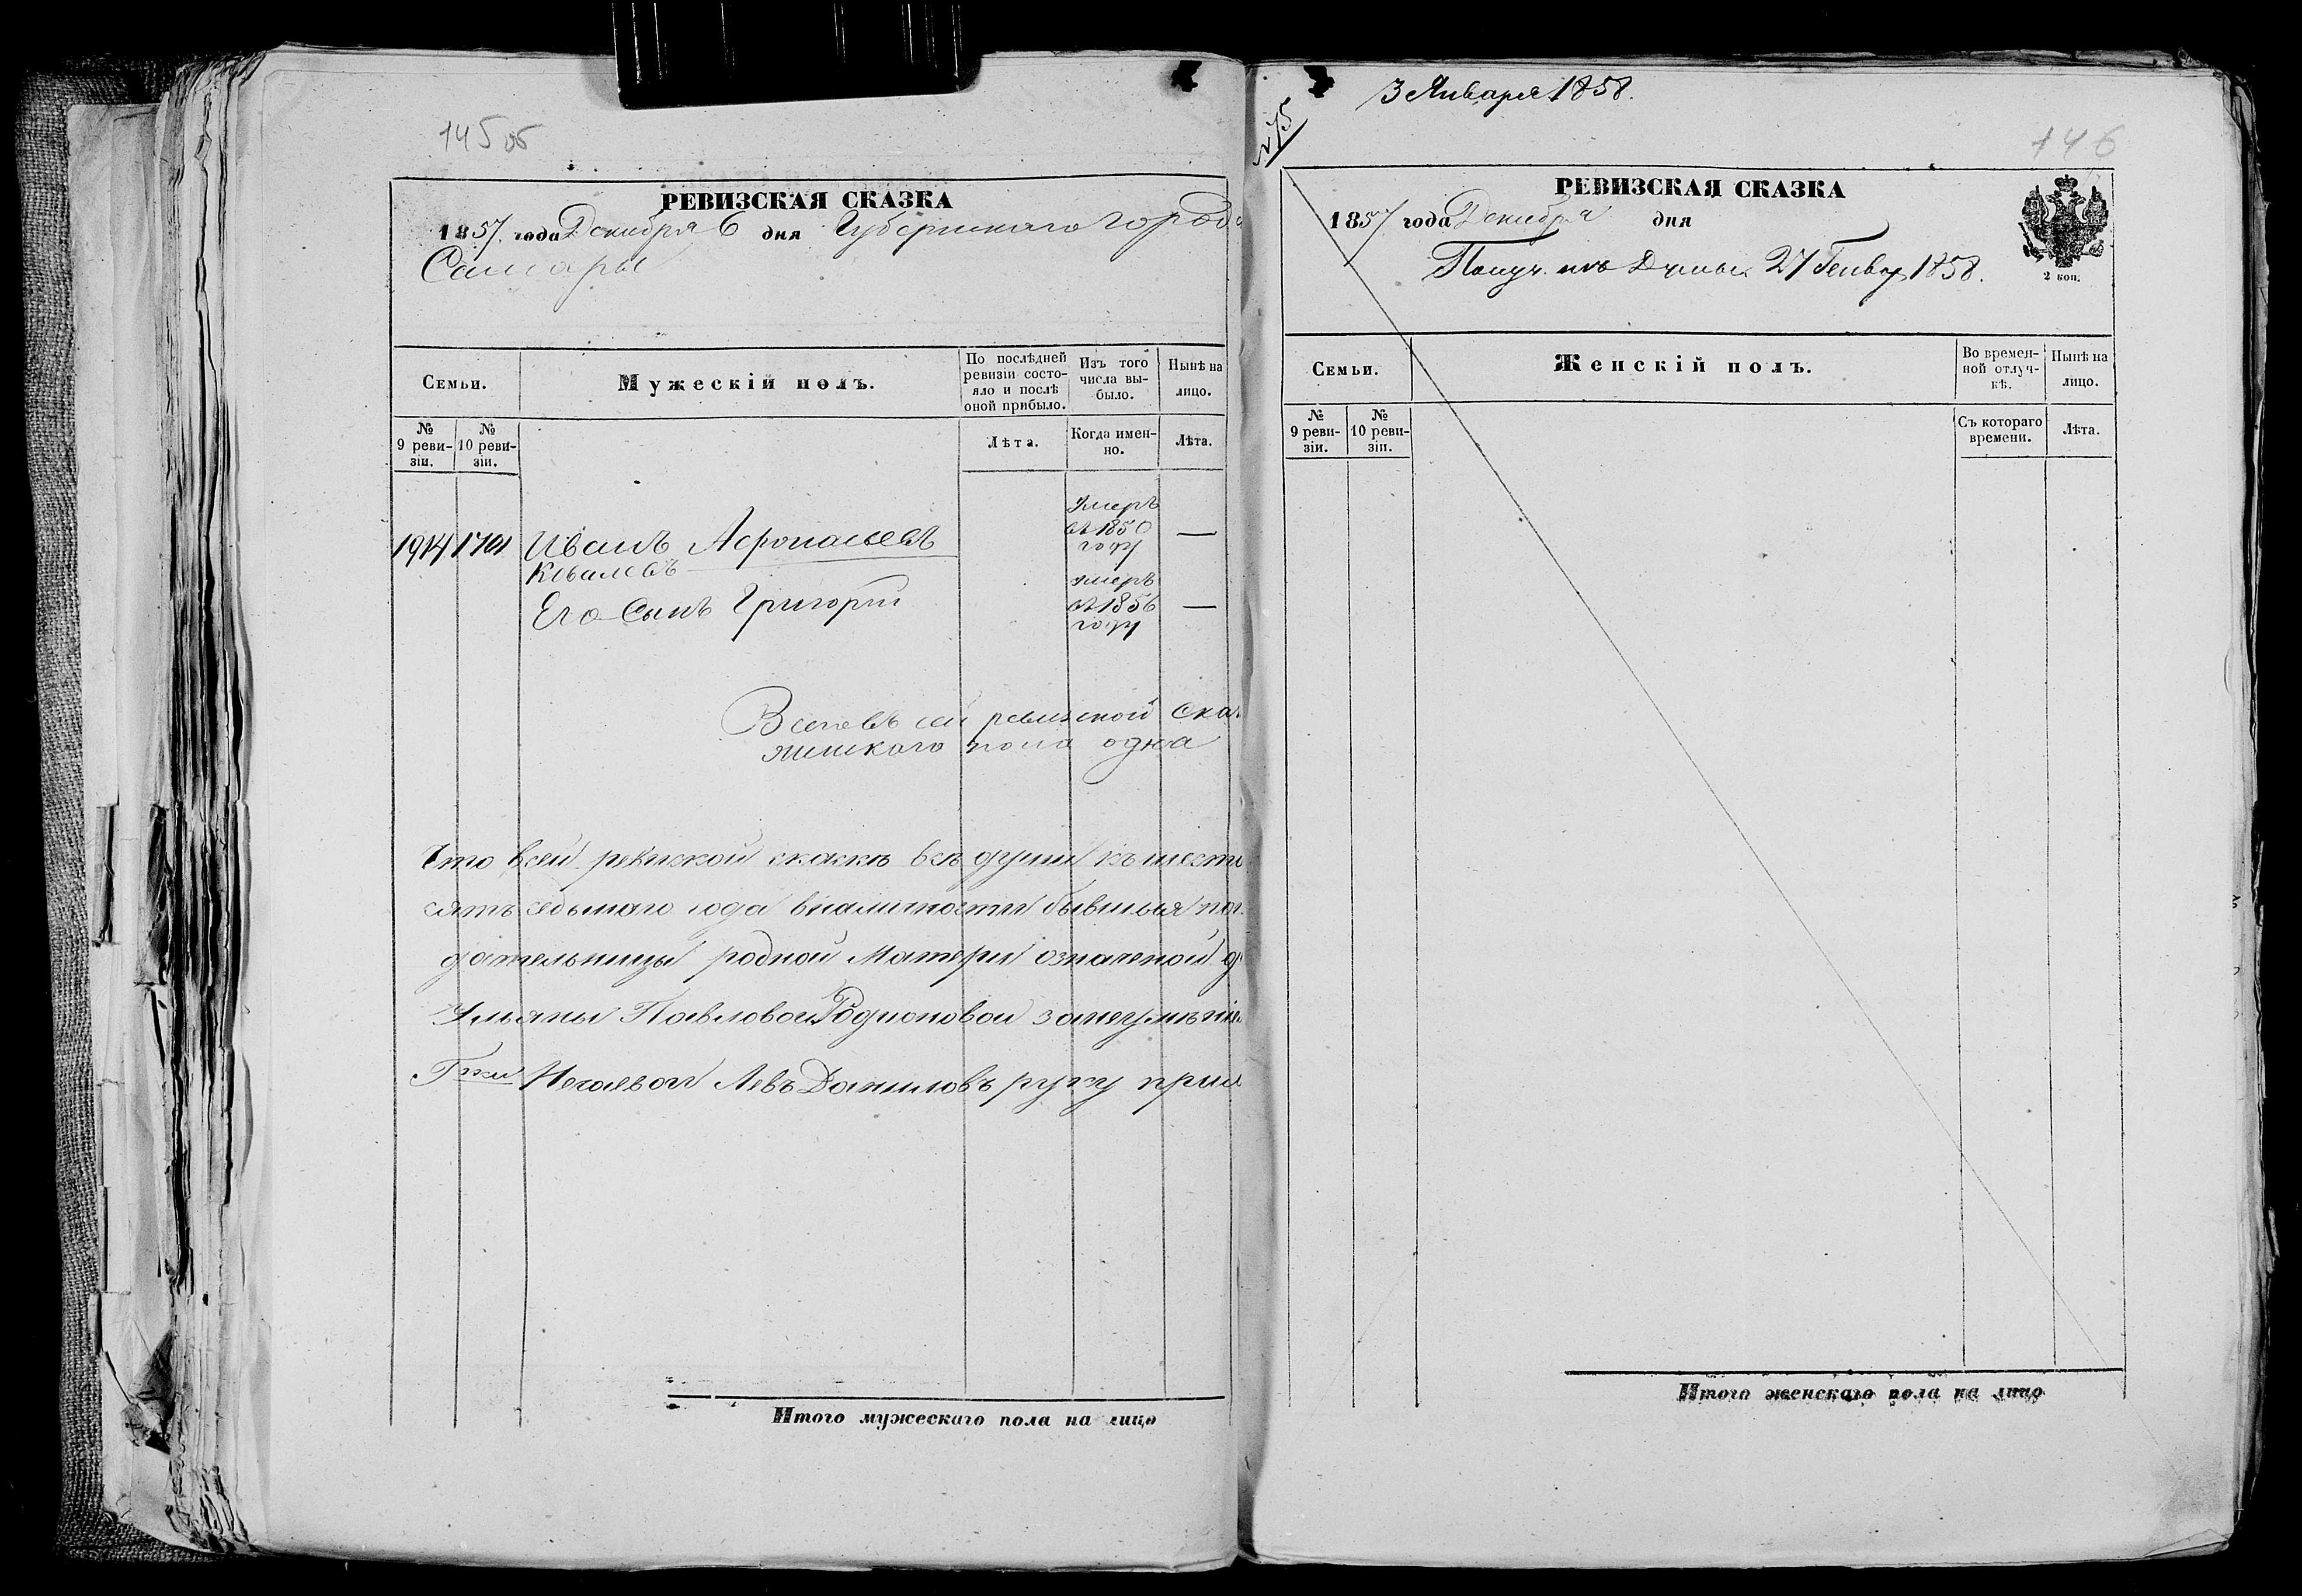 145 об
РЕВИЗСКАЯ СКАЗКА
1857. года Декабря 6 дня Губернскаго города
Самары
Семьи.
Мужескій полъ.
По послѣдней ревизіи состояло и послѣ оной прибыло.
Изъ того числа выбыло.
Нынѣ на лицо.
№ 9 ревизіи.
№ 10 ревизіи.
Лѣта.
Когда именно.
Лѣта.
1914 1701 Иванъ Афонасьевъ умеръ въ 1850 году —
Его Сынъ Григорій умеръ въ 1856 году —
Всего въ сей ревизской ска
женскаго пола одна
Что в сей ревизской сказкѣ всѣ души къ шести
сятъ седьмаго года в наличности бывшия
дательницы родной Матери означеной
Ульяны Павловой Родионовой
Левъ Даниловъ руку при
Итого мужескаго пола на лицо
3 Января 1858.
№ 75
146
РЕВИЗСКАЯ СКАЗКА
1857 года Декабря дня
Получ. изъ Думы 27 Генвар 1858.
2 коп.
Семьи.
Женскій полъ.
Во временной отлучкѣ.
Нынѣ на лицо.
№ 9 ревизіи.
№ 10 ревизіи.
Съ котораго времени.
Лѣта.
Итого женскаго пола на лицо